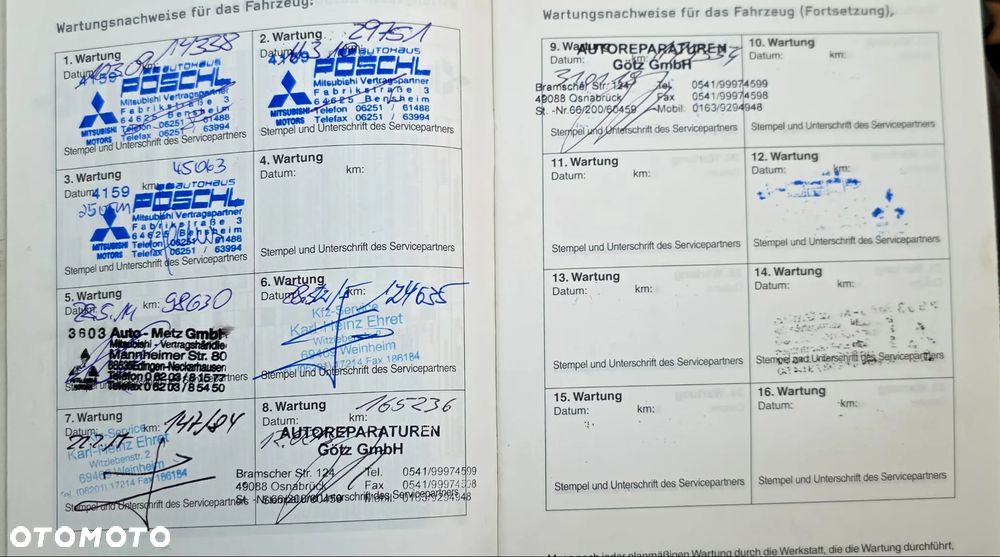 Wartungsnachweise für das Fahrzeug:
1. Wartung
Datum: 14338
4159 AUTOHAUS
PÖSCHL
Mitsubishi Vertragspartner
Fabrikstraße 3
64625 Bensheim
MITSUBISHI Telefon 06251 / 61488
MOTORS Telefax 06251 / 63994
Stempel und Unterschrift des Servicepartners
2. Wartung
29751
4159 AUTOHAUS
PÖSCHL
Mitsubishi Vertragspartner
Fabrikstraße 3
64625 Bensheim
MITSUBISHI Telefon 06251 / 61488
MOTORS Telefax 06251 / 63994
Stempel und Unterschrift des Servicepartners
3. Wartung
45063
Datum: km:
4159 AUTOHAUS
PÖSCHL
Mitsubishi Vertragspartner
Fabrikstraße 3
64625 Bensheim
MITSUBISHI Telefon 06251 / 61488
MOTORS Telefax 06251 / 63994
Stempel und Unterschrift des Servicepartners
4. Wartung
Datum: km:
Stempel und Unterschrift des Servicepartners
5. Wartung
Datum: km: 98630
3603 Auto-Metz GmbH
Mitsubishi - Vertragshändler
Mannheimer Str. 80
Edingen-Neckarhausen
Telefon 0 62 03 / 8 15 77
Telefax 0 62 03 / 8 54 50
6. Wartung
Datum: 124655
Kfz-Service
Karl-Heinz Ehret
69469 Weinheim
17214 Fax 186184
Stempel und Unterschrift des Servicepartners
7. Wartung
Datum: km:
Karl-Heinz Ehret
Witzlebenstr. 2
69469 Weinheim
Tel. (06201) 17214 Fax 186184
Stempel und Unterschrift des Servicepartners
8. Wartung
km: 165236
AUTOREPARATUREN
Götz GmbH
Bramscher Str. 124 Tel. 0541/99974599
49088 Osnabrück Fax 0541/99974598
St. -Nr.66/200/60459 Mobil: 0163/9294948
Stempel und Unterschrift des Servicepartners
Wartungsnachweise für das Fahrzeug (Fortsetzung),
9. Wartung
AUTOREPARATUREN
Götz GmbH
Bramscher Str. 124 Tel. 0541/99974599
49088 Osnabrück Fax 0541/99974598
St. -Nr.66/200/60459 Mobil: 0163/9294948
Stempel und Unterschrift des Servicepartners
10. Wartung
km:
Stempel und Unterschrift des Servicepartners
11. Wartung
Datum: km:
Stempel und Unterschrift des Servicepartners
12. Wartung
Datum: km:
Stempel und Unterschrift des Servicepartners
13. Wartung
Datum: km:
Stempel und Unterschrift des Servicepartners
14. Wartung
Datum: km:
Stempel und Unterschrift des Servicepartners
15. Wartung
Datum: km:
Stempel und Unterschrift des Servicepartners
16. Wartung
Datum: km:
Stempel und Unterschrift des Servicepartners
nach jeder planmäßigen Wartung durch die Werkstatt, die die Wartung durchführt,
OTOMOTO